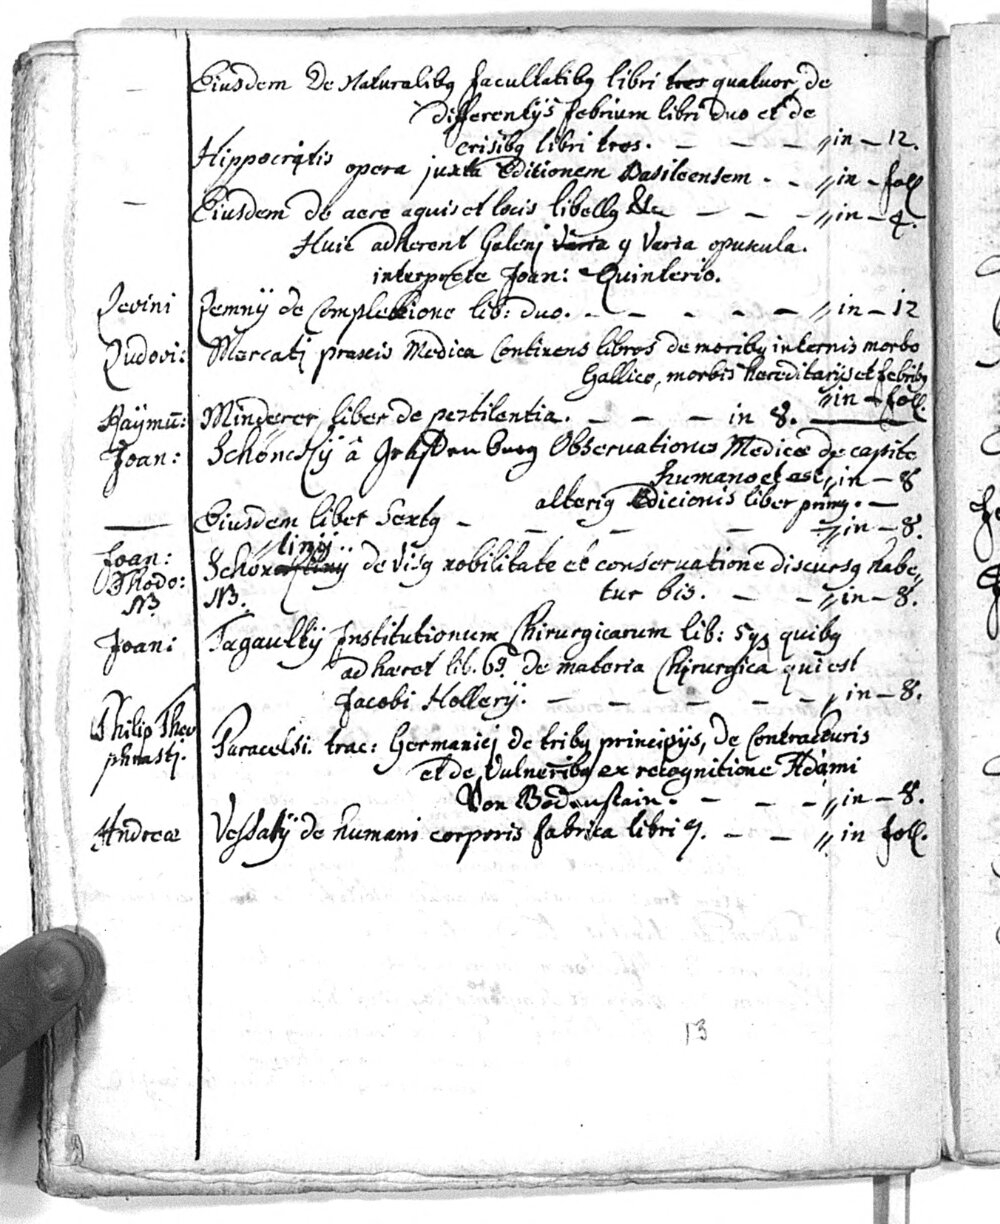 — Eiusdem De Naturalibq facultatibq libri tres quatuor, de
differentijs febrium libri duo et de
crisibq libri tres. — — — in — 12.
Hippocratis opera juxta Editionem Basileensem. — in — foll
— Eiusdem de aere aquis et locis libellq &c — — — in — 4.
Huic adherent Galenj varia q Varia opuscula.
interprete Joan: Quinterio.
Levini Lemnij de Complexione lib: duo. — — — — — in — 12
Ludovi: Mercatj praxis Medica Continens libros de moribq internis morbo
Gallico, morbis hereditarijs et febribq
in — foll.
Raymu: Minderer liber de pestilentia. — — — in 8. —
Joan: Schöncktij â Grafenburg Observationes Medicae de capite
humano et est in — 8
alteriq Edicionis liber primq. —
— Eiusdem liber Sextq — — — — — in — 8.
Joan: linij
Thodo: Schön de Visq nobilitate et conservatione discursq habe„
NB. NB. tur bis. — — in — 8.
Joan: Tagaultij Institutionum Chirurgicarum lib: 5qs quibq
adhaeret lib. 6q de materia Chirurgica qui est
Jacobi Hollerij. — — — — — in — 8.
Philip Theo
phrastj. Paracelsi. trac: Germanicj de tribq principijs, de Contracturis
et de Vulneribq ex recognitione Adami
Von Bodenstain. — — — in — 8.
Andreae Vessalij de humani corporis fabrica libri 7. — — in foll.
13